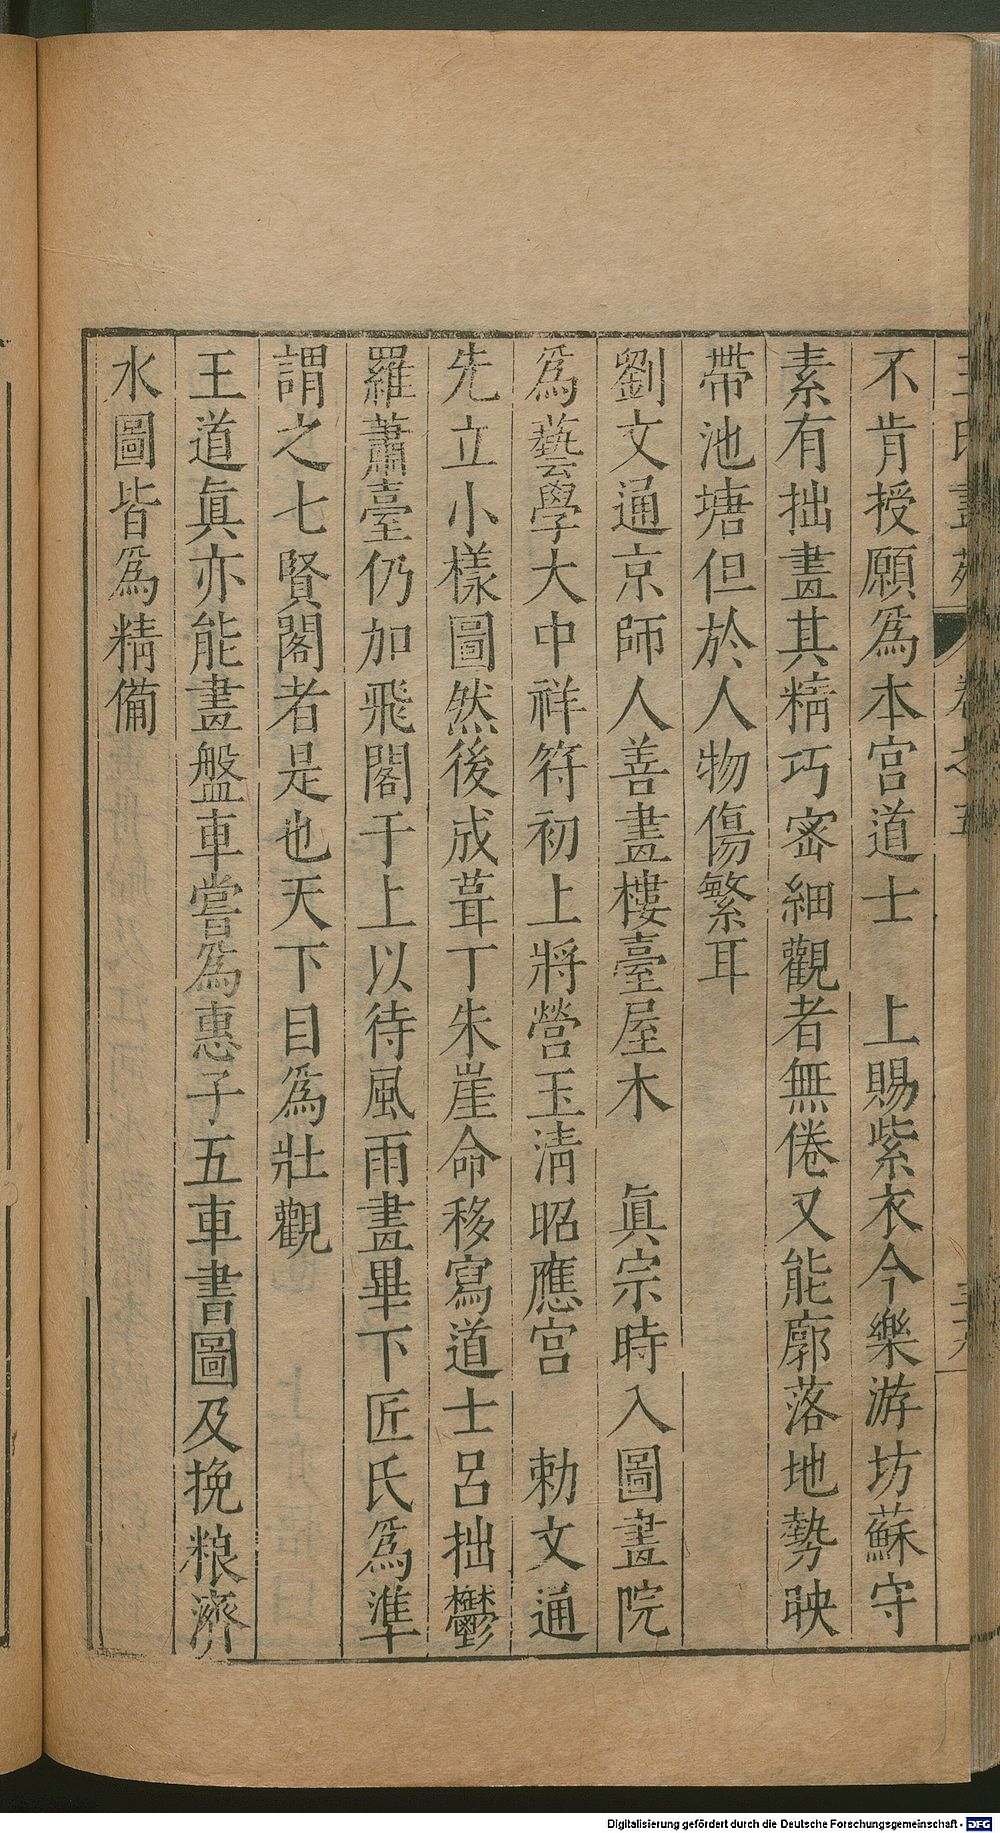 王氏畫苑 卷之五 三六
不肯授願爲本宮道士　上賜紫衣今樂游坊蘇守
素有拙畫其精巧密細觀者無倦又能廓落地勢映
帶池塘但於人物傷繁耳
劉文通京師人善畫樓臺屋木　眞宗時入圖畫院
爲藝學大中祥符初上將營玉淸昭應宮　勅文通
先立小樣圖然後成葺丁朱崖命移寫道士呂拙鬱
羅蕭臺仍加飛閣于上以待風雨畫畢下匠氏爲準
謂之七賢閣者是也天下目爲壯觀
王道眞亦能畫盤車嘗爲惠子五車書圖及挽粮濟
水圖皆爲精備
Digitalisierung gefördert durch die Deutsche Forschungsgemeinschaft - DFG